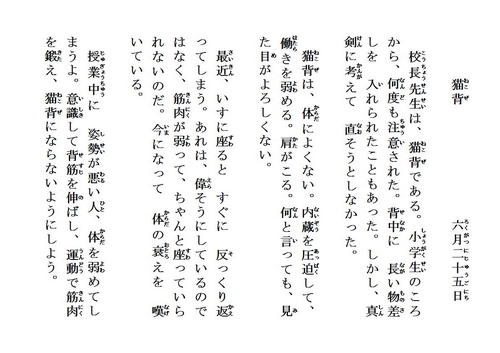 猫背　六月二十五日
校長先生は、猫背である。小学生のころ
から、何度も注意された。背中に　長い物差
しを　入れられたこともあった。しかし、真
剣に考えて　直そうとしなかった。
猫背は、体によくない。内蔵を圧迫して、
働きを弱める。肩がこる。何と言っても、見
た目がよろしくない。
最近、いすに座ると　すぐに　反っくり返
ってしまう。あれは、偉そうにしているので
はなく、筋肉が弱って、ちゃんと座っていら
れないのだ。今になって　体の衰えを　嘆
いている。
授業中に　姿勢が悪い人、体を弱めてし
まうよ。意識して背筋を伸ばし、運動で筋肉
を鍛え、猫背にならないようにしよう。